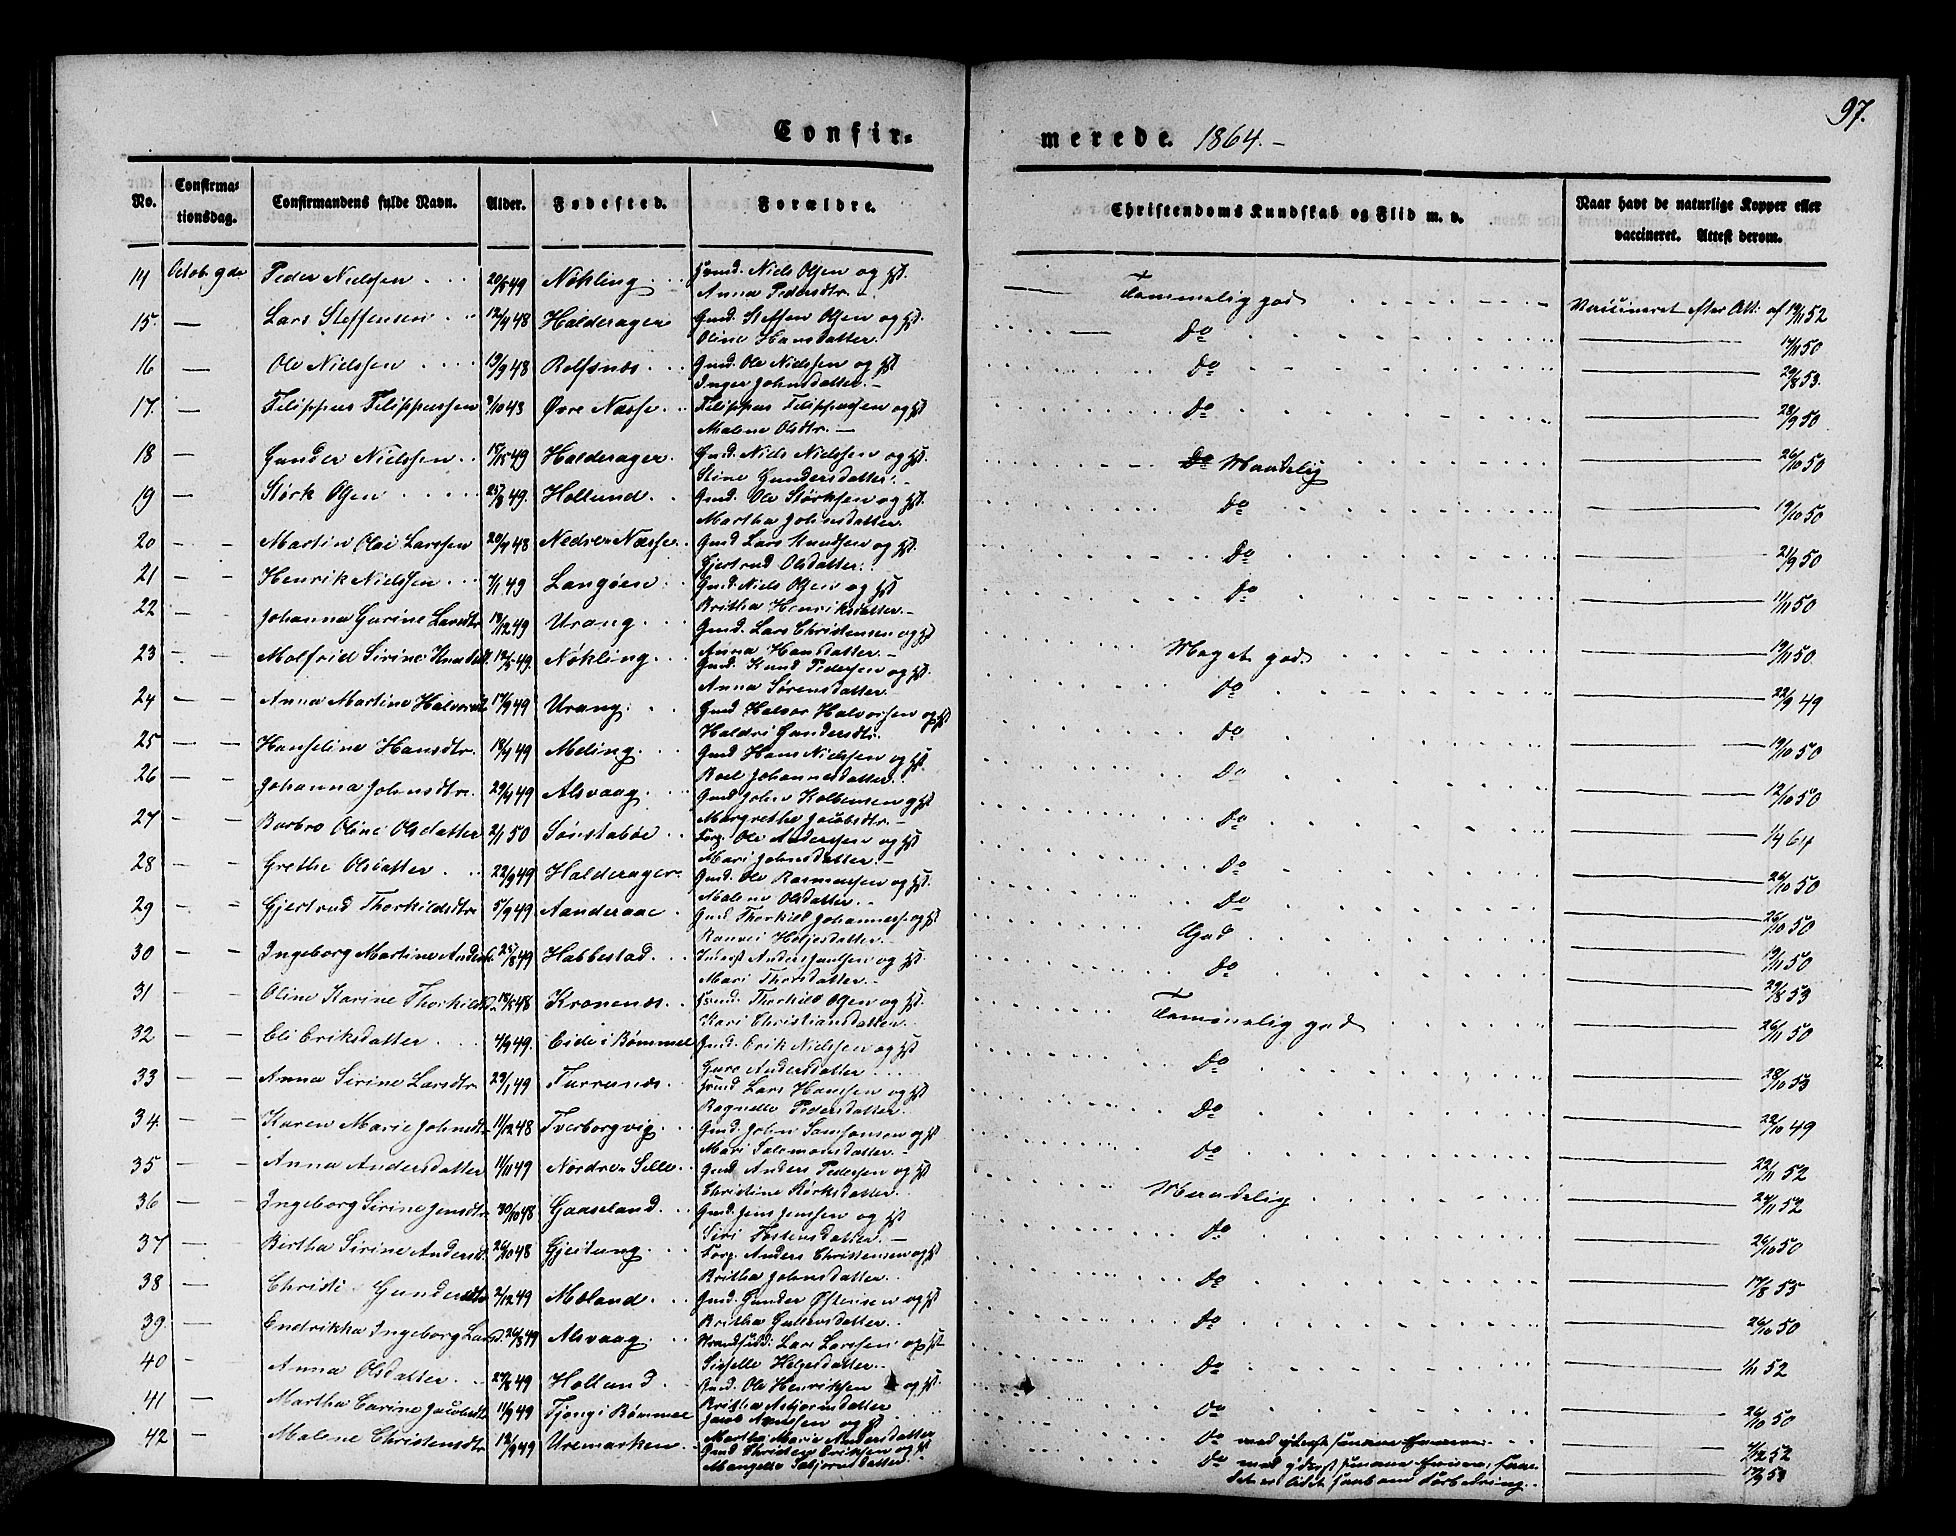 97.
Confir- merede. 1864.-
No. Confirma-tionsdag. Confirmandens fulde Navn. Alder. Fødested. Forældre. Christendoms Kundskab og Flid m. v. Naar havt de naturlige Kopper eller vaccineret. Attest derom.
14 Octob. 9de Peder Nielsen 20/5 49 Nøkling Gmd. Niels Olsen og Hst. Anna Pedersdtr. Temmelig god Vaccineret efter Att: af 19/11 52
15. — Lars Steffensen 12/4 48 Halderager Gmd. Steffen Olsen og Hst. Oline Hansdatter. Do 17/11 50
16 — Ole Nielsen 19/9 48 Rolfsnæs Gmd. Ole Nielssen og Hst Inger Johnsdatter.- Do 29/8 53.
17. — Filippus Filippussen 9/10 43 Øvre Næsse Filippus Filippussen og Hst Malene Olsdtr.- Do 28/9 50
18 — Gunder Nielssen 15/5 49 Halderager Gmd. Niels Nielssen og Hst. Stine Gundersdatter.- Do Maadelig 26/10 50
19 — Størk Olsen 25/8 49. Hollund Gmd. Ole Størksen og Hst. Martha Johnsdatter. Do 19/10 50
20 — Martin Olai Larssen 20/9 48 Nedre Næsse Gmd Lars Knudsen og Hst. Gjertrud Olsdatter. Do 21/9 50
21 — Henrik Nielssen 7/1 49 Langøen Gmd. Niels Olsen og Hst Britha Henriksdatter.- Do 11/11 50
22 — Johanna Gurine Larsdtr 18/12 49 Urang Gmd. Lars Christensen og Hst Anna Hansdatter.- Meget god 19/11 50.
23 — Malfrid Sirine Knudsdt. 12/5 49 Nøkling Gmd. Knud Pedersen og Hst. Anna Sørensdatter Do 22/9 49
24 — Anna Martine Halvorsdt 17/9 49 Urang Gmd Halvor Halvorsen og Hst Haldri Gundersdtr. Do 19/10 50
25 — Hanseline Hansdtr. 18/4 49 Meling Gmd Hans Nielssen og Hst. Boel Johannesdatter. Do 12/10 50
26 — Johanna Johnsdtr. 29/4 49 Alsvaag Gmd John Kolbensen og Hst Margrethe Jacobsdtr.- Do 1/4 64
27 — Barbro Oline Olsdatter 2/1 50 Sønstabøe Forp. Ole Anderssen og Hst Mari Johnsdatter.- Do 26/10 50
28 — Grethe Olsdatter 22/9 49 Halderager Gmd. Ole Rasmussen og Hst. Malene Olsdatter. Do 26/10 50
29 — Gjertrud Thorkildsdtr 5/9 49 Aanderaae Gmd Thorkild Johanness. og Hst Ranvei Heljesdatter.- God 19/11 50
30 — Ingeborg Martine Andersd. 25/8 49 Habbestad Anders og Hst. Mari Thorsdatter.- Do 29/8 53
31 — Oline Karine Thorkildsd. 18/5 48 Kronenæs Gmd. Thorkild Olsen og Hst. Kari Christiansdatter. Temmelig god 26/11 50
32 — Eli Eriksdatter 4/9 49. Eide i Bømmel Gmd. Erik Nielssen og Hst Guro Andersdatter Do 28/10 53
33 — Anna Sirine Larsdtr 29/1 49 Turrunæs Gmd Lars Hanssen og Hst Ragnelle Pedersdatter. Do 22/10 49
34 — Karen Marie Johnsdt 11/12 48 Tverborgvig Gmd. John Samsonsen og Hst Mari Salomonsdatter.- Do 22/11 52
35 — Anna Andersdatter 11/10 49 Nordre Selle Gmd. Anders Pedersen og Hst Christine Børksdatter. Maadelig 24/11 52
36 — Ingeborg Sirine Jensdtr 30/10 48 Gaaseland Gmd. Jens Jenssen og Hst Siri Tostensdatter.- Do 26/10 50
37 — Birtha Sirine Andersd. 26/10 48 Gjeitung Forp. Anders Christensen og Hst Britha Johnsdatter. Do 17/8 53
38 — Christi Gundersdtr 2/12 49 Mæland Gmd. Gunder Østensen og Hst Britha Guttormsdatter. Do 26/10 50
39 — Endrikka Ingeborg Larsd. 26/8 49 Alsvaag Strandsidd. Lars Larssen og Hst Sisselle Helgesdatter. Do 1/11 52
40 — Anna Olsdatter 27/8 49 Hollund Gmd. Ole Henriksen og Hst. Britha Asbjørnsdatter Do 26/10 50
41 — Martha Carine Jacobsdt 11/9 49 Tjong i Bømmel Jacob og Hst Martha Marie Andersdatter Do med yderst 7/12 52
42 — Malene Christensdtr 12/9 49 Uremarken Gmd Christen Eriksen og Hst. Mangelle Asbjørnsdatter. Do med yderst det er Forbedring. 17/9 53